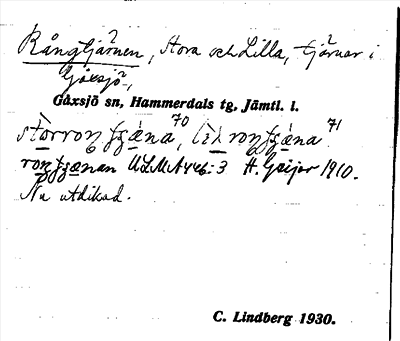 Rångtjärnen, Stora och Lilla, tjärnar i
Gåxsjö,
Gåxsjö sn, Hammerdals tg, Jämtl. l.
70 71
ULMA 446:3 H. Geijer 1910.
Nu utdikad.
C. Lindberg 1930.